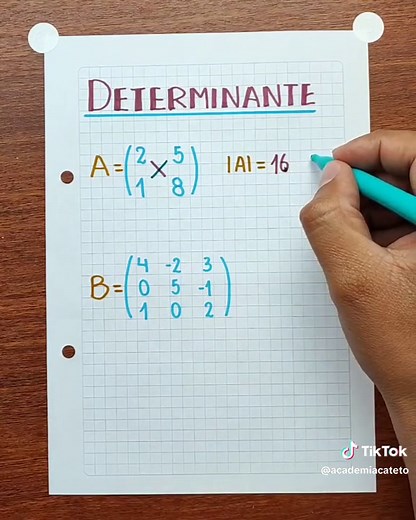 DETERMINANTE
A=(2 5
1 8) |A|=16
B=(4 -2 3
0 5 -1
1 0 2)
TikTok
@academiacateto